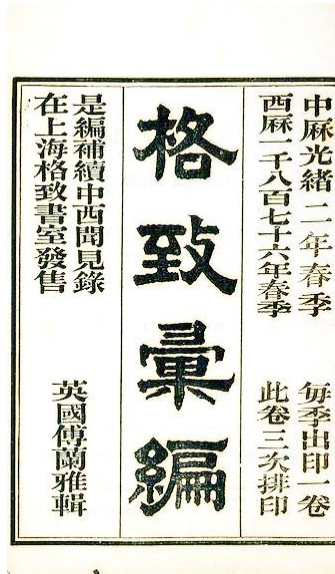 中厤光緒二年春季　每季出印一卷
西厤一千八百七十六年春季　此卷三次排印
格致彙編
是編補續中西聞見錄
在上海格致書室發售
英國傅蘭雅輯